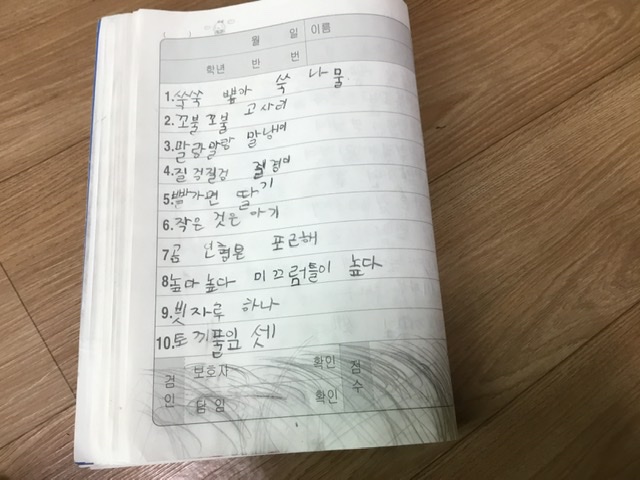 월 일 이름
학년 반 번
1. 쑥쑥 뽑아 쑥 나물
2. 꼬불꼬불 고사리
3. 말랑말랑 말냉이
4. 질겅질겅 질경이
5. 빨가면 딸기
6. 작은 것은 아기
7. 곰 인형은 포근해
8. 높다 높다 미끄럼틀이 높다
9. 빗자루 하나
10. 토끼풀잎 셋
검인 보호자 확인 점수
담임 확인